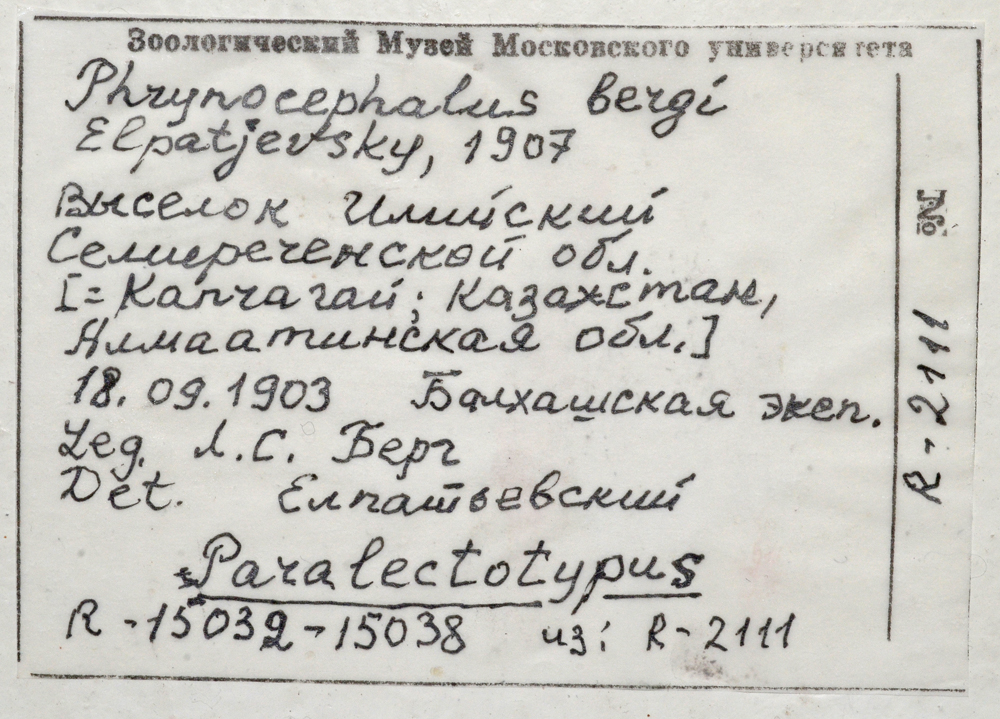 Зоологический Музей Московского университета
Phrynocephalus bergi
Elpatjevsky, 1907
Выселок Илийский
Семиреченской обл.
[= Капчагай; Казахстан,
Алмаатинская обл.]
18.09.1903 Балхашская эксп.
Leg. Л.С. Берг
Det. Елпатьевский
Paralectotypus
R-15032-15038 из: R-2111
№ R-2111